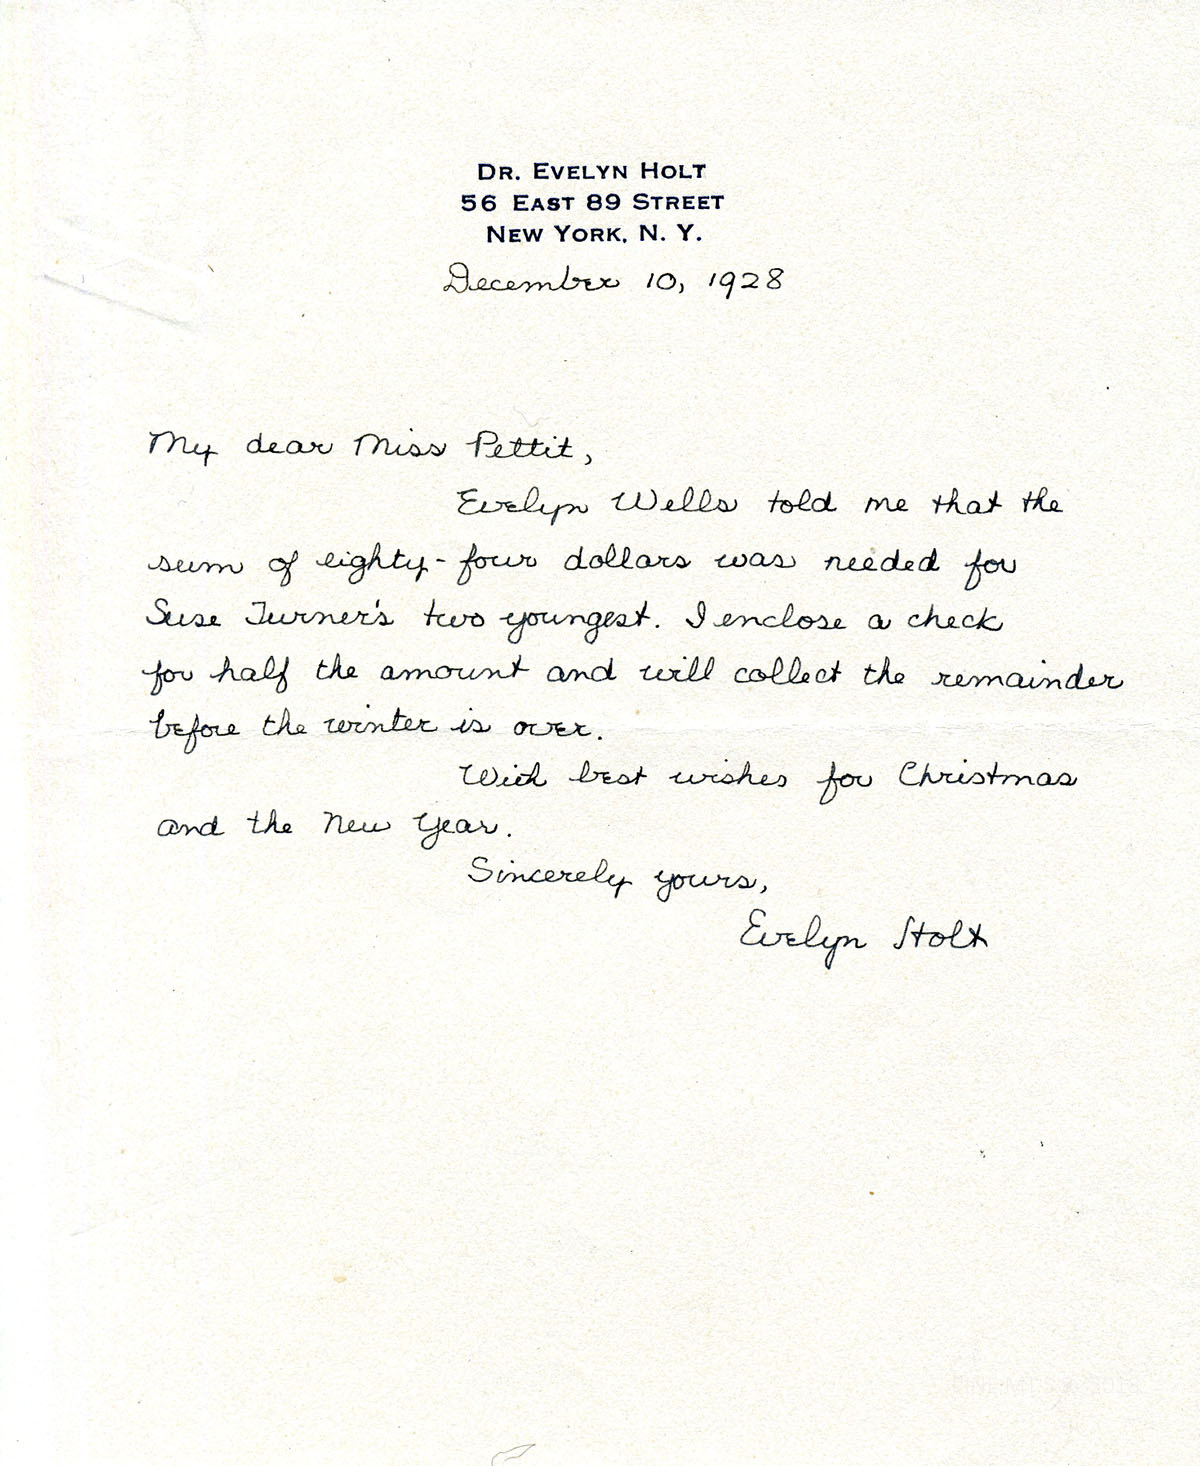 DR. EVELYN HOLT
56 EAST 89 STREET
NEW YORK, N. Y.
December 10, 1928
My dear Miss Pettit,
Evelyn Wells told me that the
sum of eighty-four dollars was needed for
Suse Turner's two youngest. I enclose a check
for half the amount and will collect the remainder
before the winter is over.
With best wishes for Christmas
and the New Year.
Sincerely yours,
Evelyn Holt